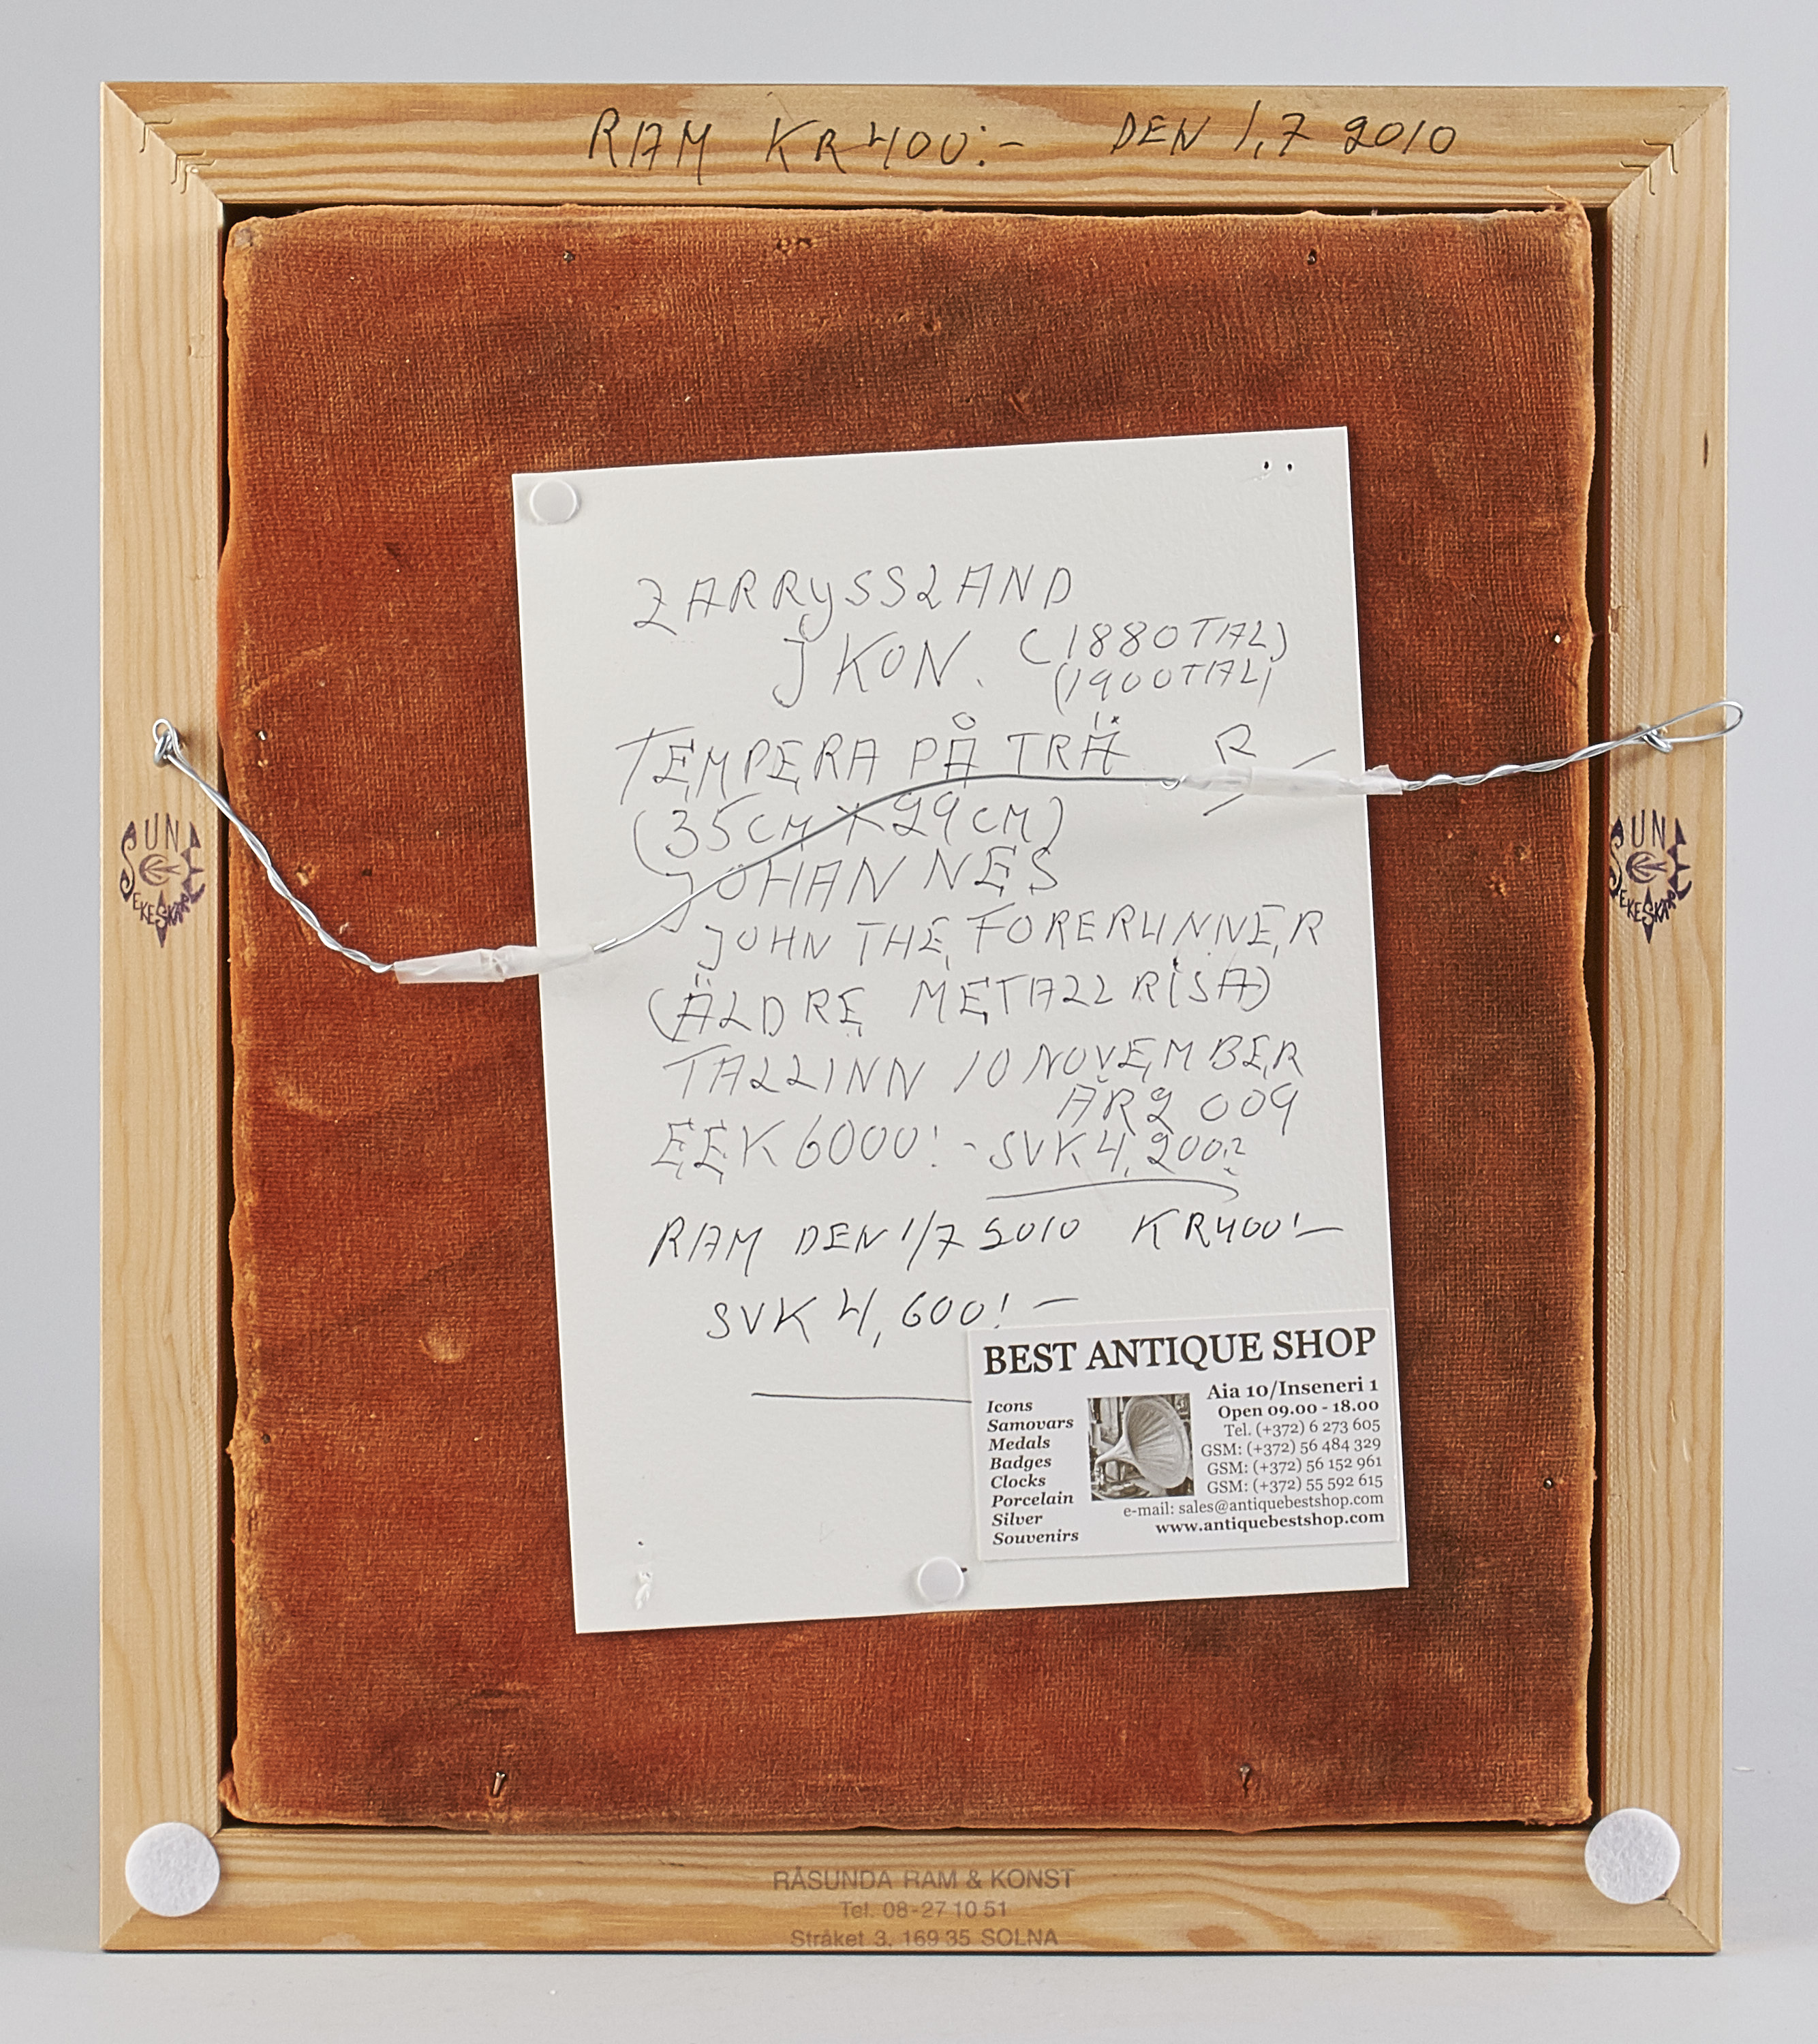 RAM KR 400:- DEN 1,7 2010
ZARRYSSLAND
JKON. (1880TAL)
(1900TAL)
TEMPERA PÅ TRÄ R
(35CM X 29CM)
JOHANNES
JOHN THE FORERUNNER
(ÄLDRE METALL RISA)
TALLINN 10 NOVEMBER
ÅR 2009
EEK 6000!- SVK 4,200
RAM DEN 1/7 2010 KR 400!-
SVK 4,600!-
BEST ANTIQUE SHOP
Icons
Samovars
Medals
Badges
Clocks
Porcelain
Silver
Souvenirs
Aia 10/Inseneri 1
Open 09.00 - 18.00
Tel. (+372) 6 273 605
GSM: (+372) 56 484 329
GSM: (+372) 56 152 961
GSM: (+372) 55 592 615
e-mail: sales@antiquebestshop.com
www.antiquebestshop.com
SUNE
EKESKÄR
SUNE
EKESKÄR
RÅSUNDA RAM & KONST
Tel. 08-27 10 51
Stråket 3, 169 35 SOLNA